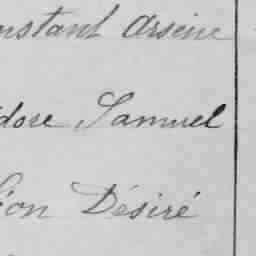 nstant Arsène
dore Samuel
éon Désiré